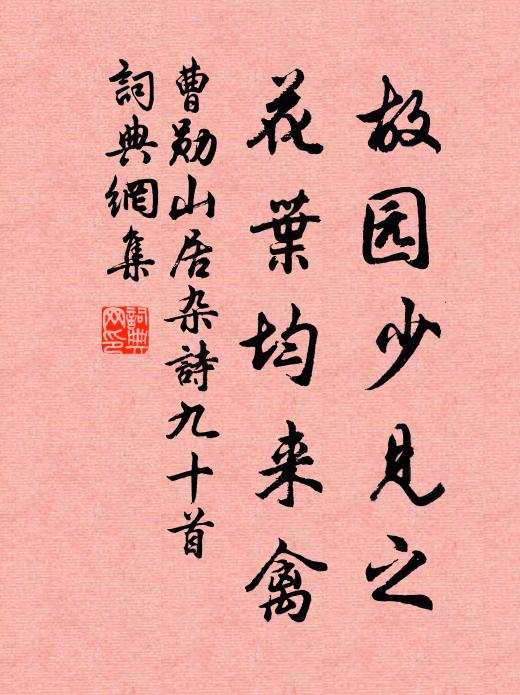 故园少见之
花葉均来禽
曹勋山居杂詩九十首
詞典網集
詞典網印